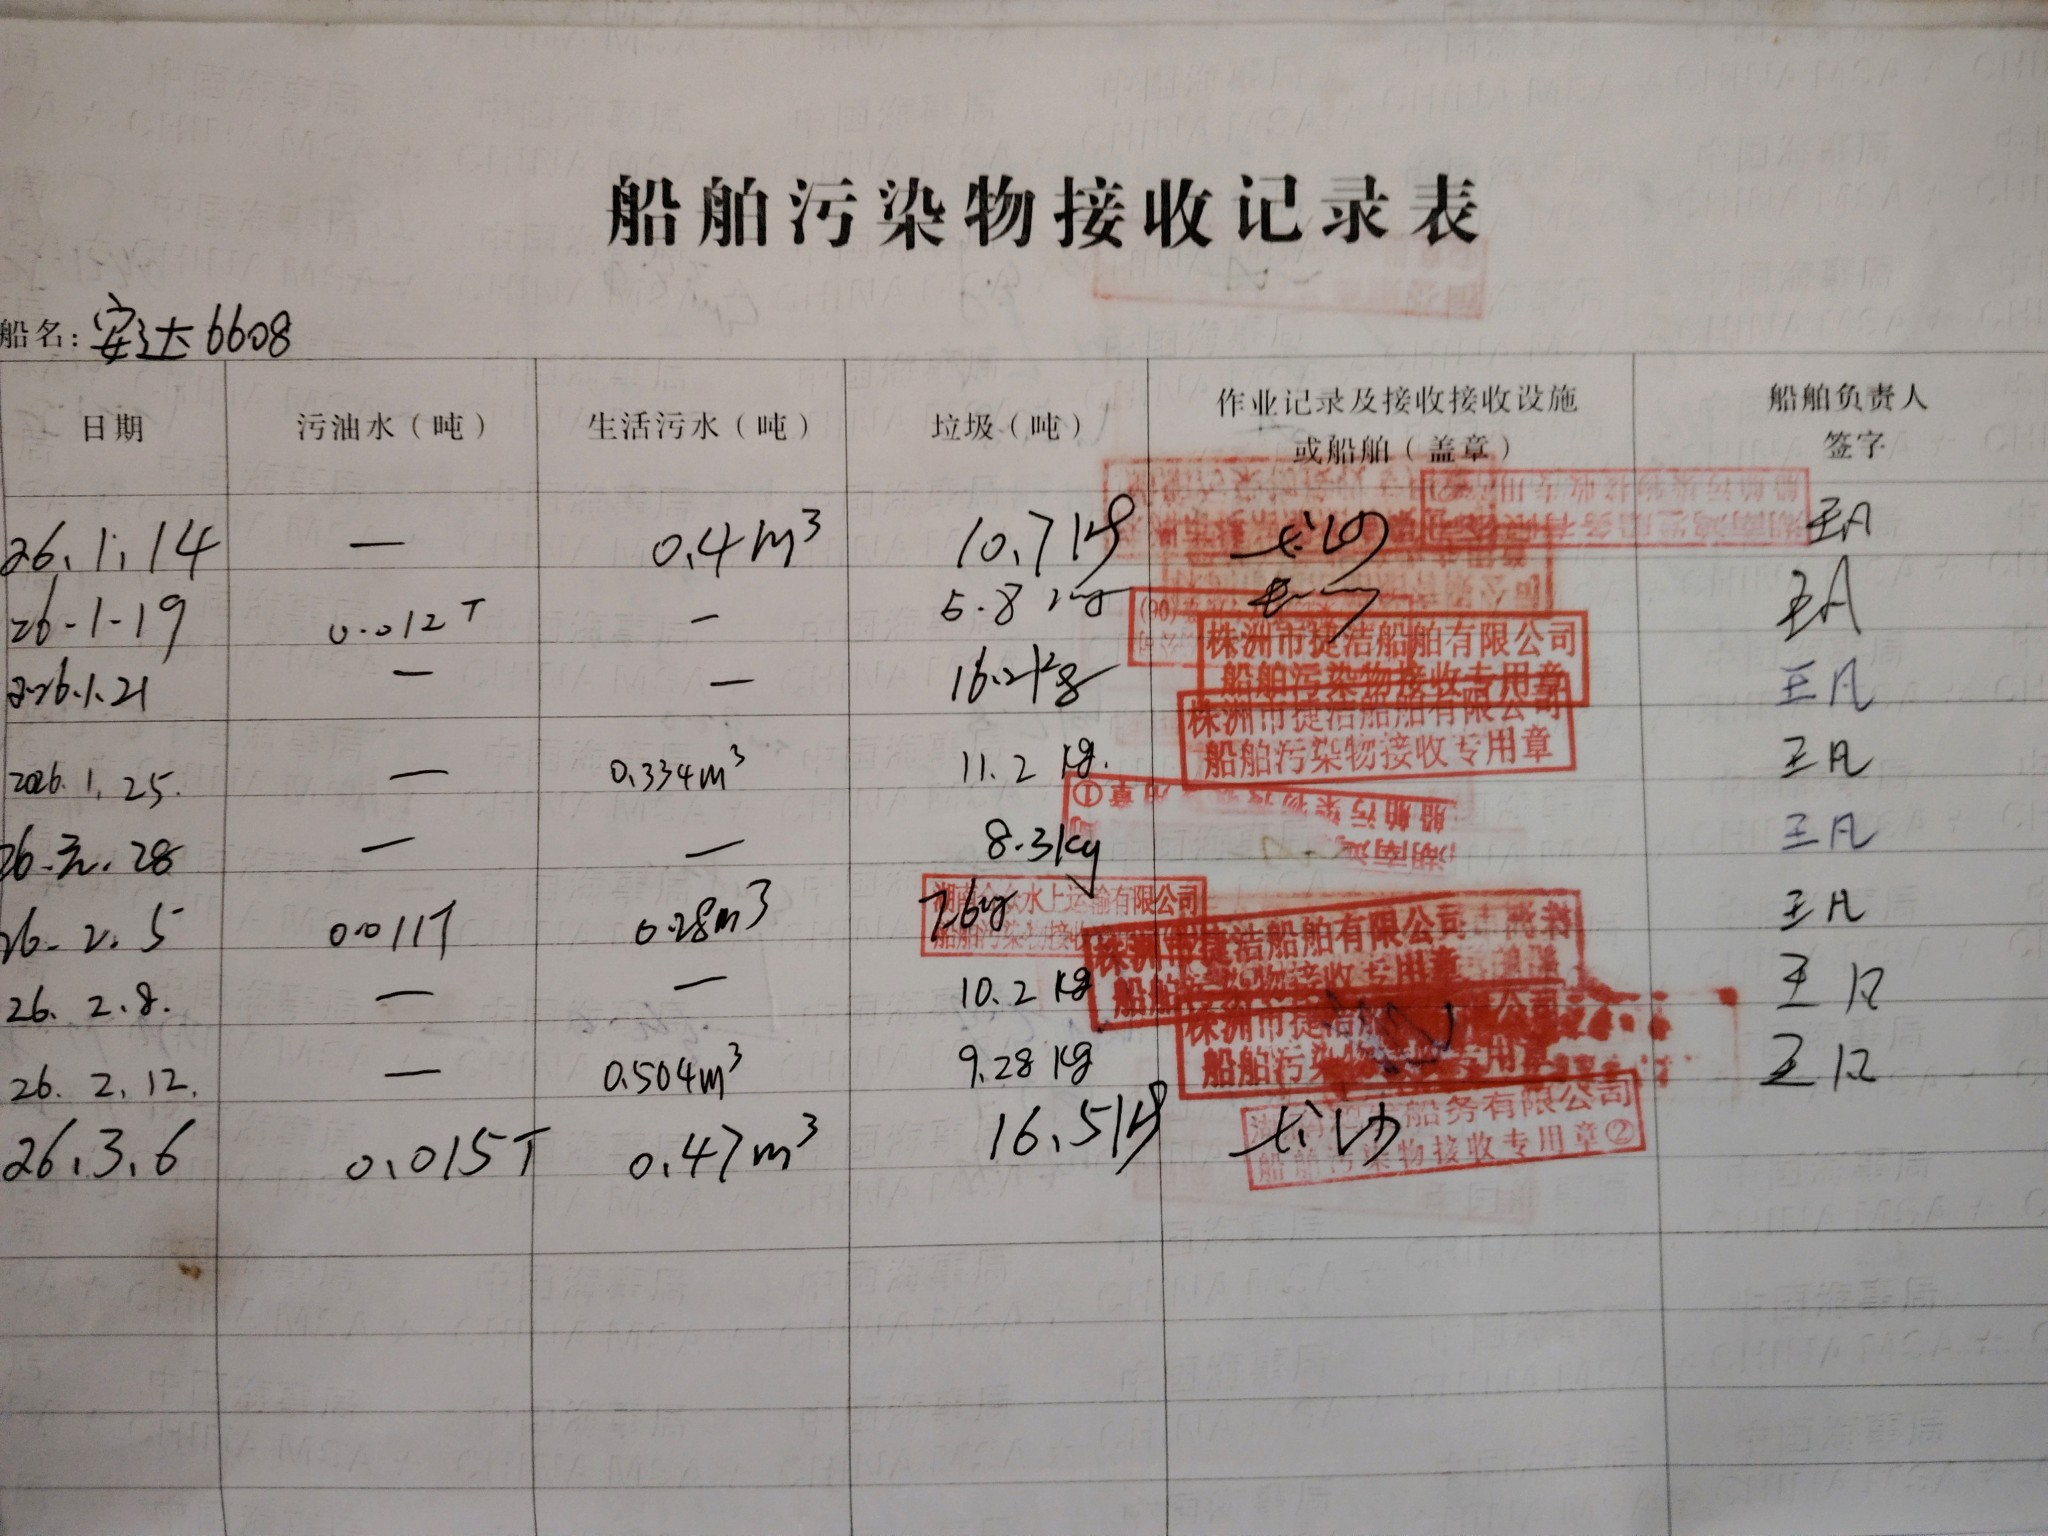 船舶污染物接收记录表
船名：安达6608
日期 污油水（吨） 生活污水（吨） 垃圾（吨） 作业记录及接收接收设施或船舶（盖章） 船舶负责人签字
26.1.14 — 0.4m³ 10.7kg 长沙 王凡
26-1-19 0.012T — 5.8kg 王凡
2026.1.21 — — 16.2kg 王凡
株洲市捷洁船舶有限公司
船舶污染物接收专用章
株洲市捷洁船舶有限公司
船舶污染物接收专用章
2026.1.25. — 0.334m³ 11.2kg. 王凡
26.元.28 — — 8.3kg 王凡
26.2.5 0.011T 0.28m³ 7.6kg 王凡
湖南众众水上运输有限公司
船舶污染物接收
株洲市捷洁船舶有限公司
船舶污染物接收专用章
26.2.8. — — 10.2kg 王凡
26.2.12. — 0.504m³ 9.28kg 王凡
株洲市捷洁船舶有限公司
船舶污染物接收专用章
26.3.6 0.015T 0.47m³ 16.5kg 长沙
船务有限公司
船舶污染物接收专用章②